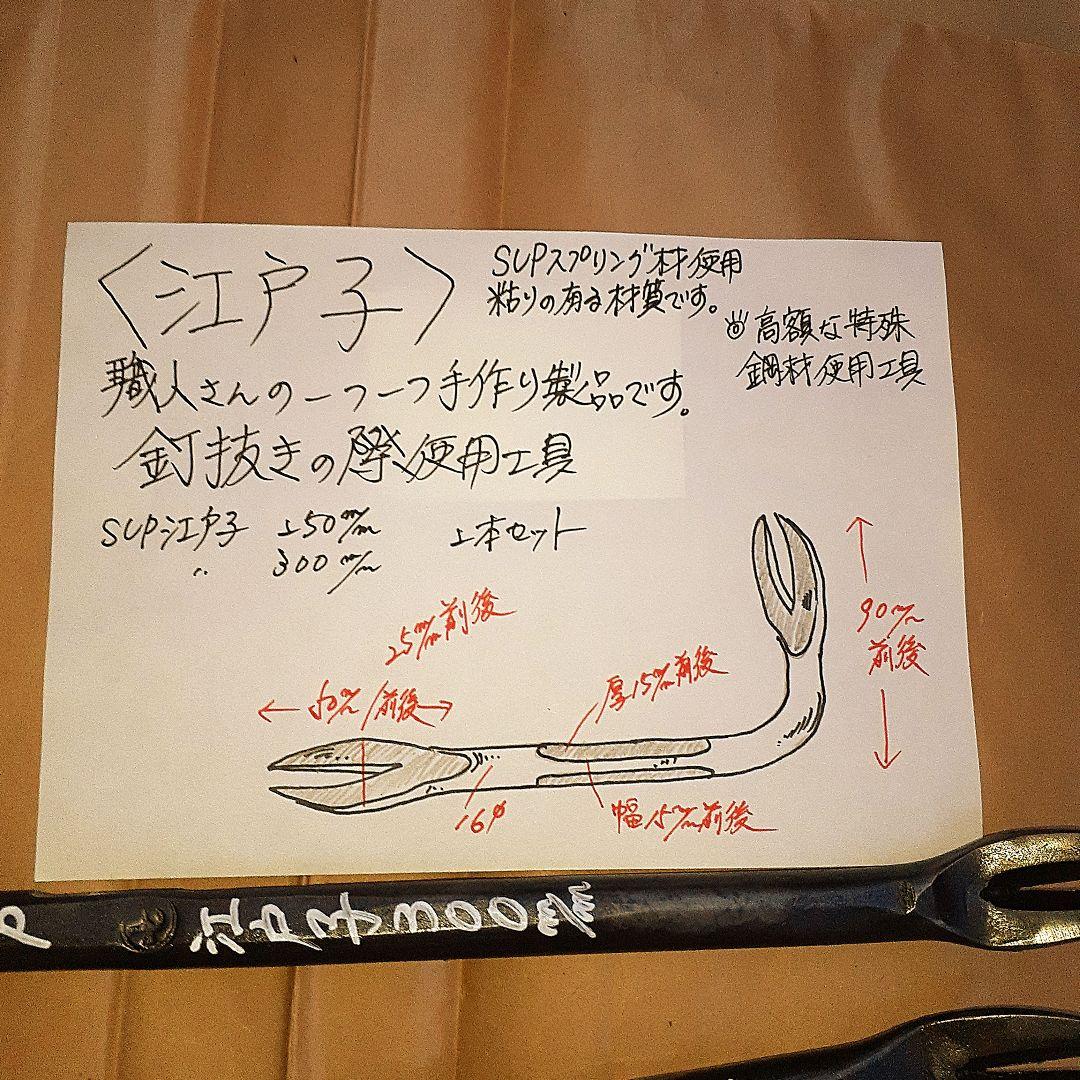 〈江戸子〉
SUPスプリング材使用
粘りの有る材質です。
◎高額な特殊
鋼材使用工具
職人さんの一つ一つ手作り製品です。
釘抜きの際使用工具
SUP江戸子 250m/m 2本セット
〃 300m/m
25m/m前後
50m/m前後
厚15m/m前後
90m/m
前後
16φ
幅15m/m前後
江戸子300m/m